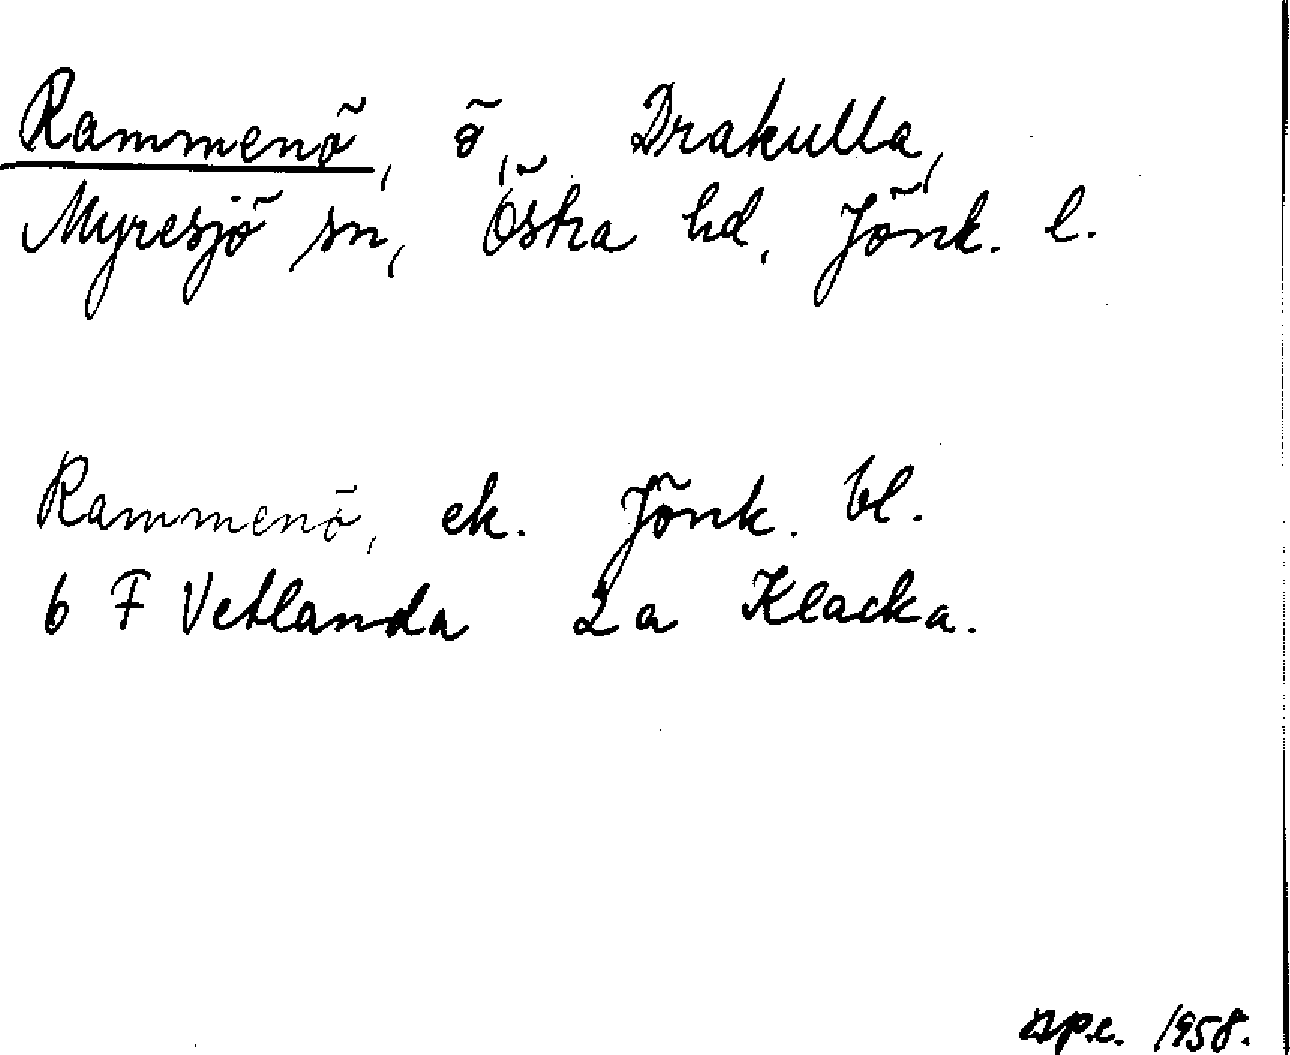 Rammenö, ö, Drakulla,
Myresjö sn, Östra hd, Jönk. l.
Rammenö, ek. Jönk. bl.
6 F Vetlanda 2 a Klacka.
1958.